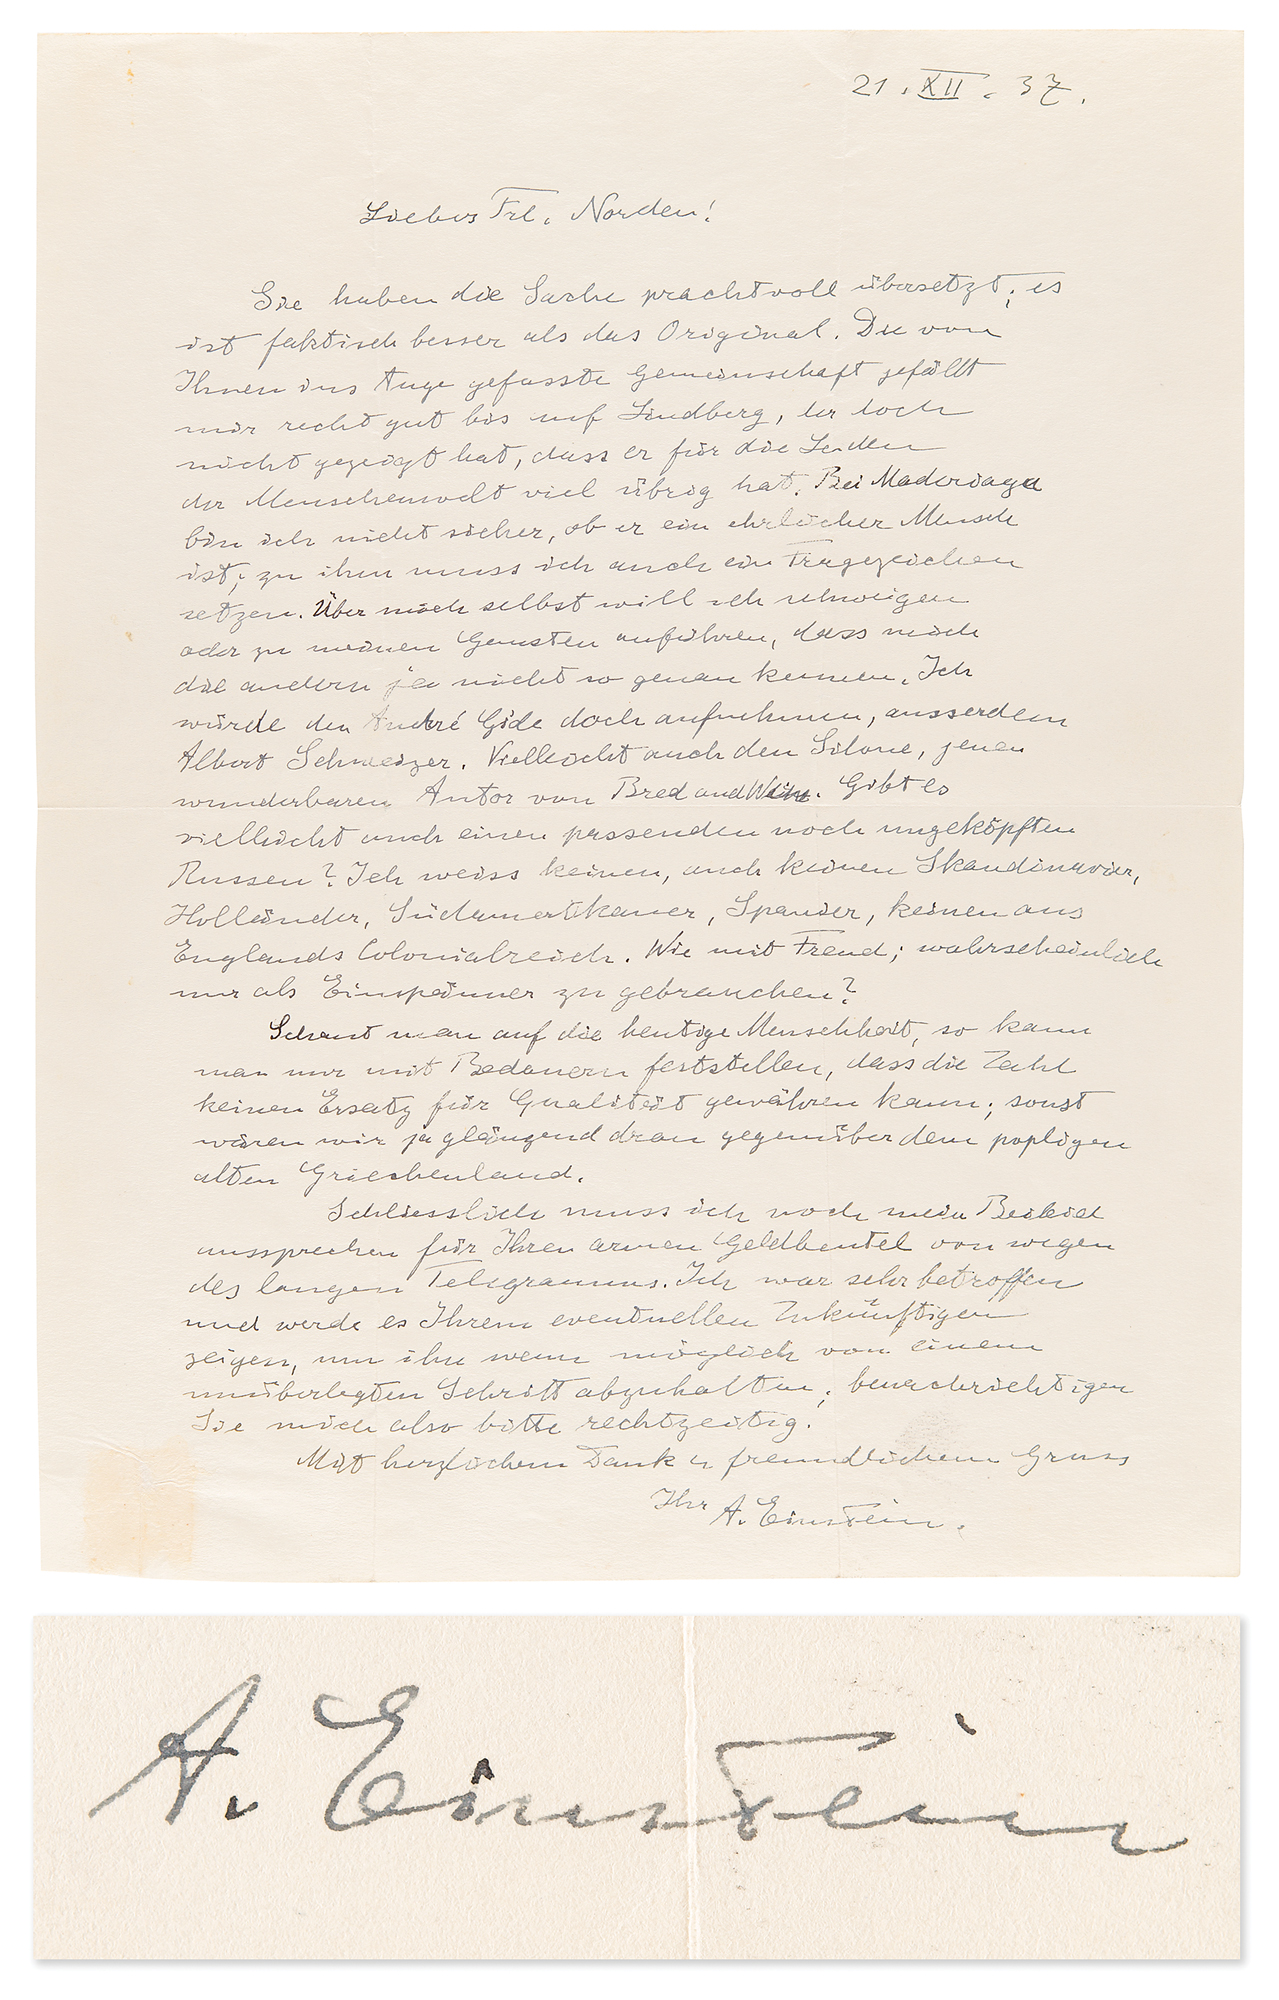 21. XII. 37.
Liebes Frl. Norden!
Sie haben die Sache prachtvoll übersetzt; es
ist faktisch besser als das Original. Die von
Ihnen ins Auge gefasste Gemeinschaft gefällt
mir recht gut bis auf Lindberg, der doch
nicht gezeigt hat, dass er für die Leiden
der Menschenwelt viel übrig hat. Bei Maderiaga
bin ich nicht sicher, ob er ein ehrlicher Mensch
ist; zu ihm muss ich auch ein Fragezeichen
setzen. Über mich selbst will ich schweigen
oder zu meinen Gunsten anführen, dass mich
die andern ja nicht so genau kennen. Ich
würde den André Gide doch aufnehmen, ausserdem
Albert Schweizer. Vielleicht auch den Silone, jenen
wunderbaren Autor von Bred and Wine. Gibt es
vielleicht auch einen passenden noch ungeköpften
Russen? Ich weiss keinen, auch keinen Skandinavier,
Holländer, Südamerikaner, Spanier, keinen aus
Englands Colonialreich. Wie mit Freud; wahrscheinlich
nur als Einspänner zu gebrauchen?
Schaut man auf die heutige Menschheit, so kann
man nur mit Bedauern feststellen, dass die Zahl
keinen Ersatz für Qualität gewähren kann; sonst
wären wir ja glänzend dran gegenüber dem popligen
alten Griechenland.
Schliesslich muss ich noch mein Beileid
aussprechen für Ihren armen Geldbeutel von wegen
des langen Telegramms. Ich war sehr betroffen
und werde es Ihrem eventuellen Zukünftigen
zeigen, um ihn wenn möglich von einem
unüberlegten Schritt abzuhalten; benachrichtigen
Sie mich also bitte rechtzeitig.
Mit herzlichem Dank u freundlichem Gruss
Ihr A. Einstein.
A. Einstein